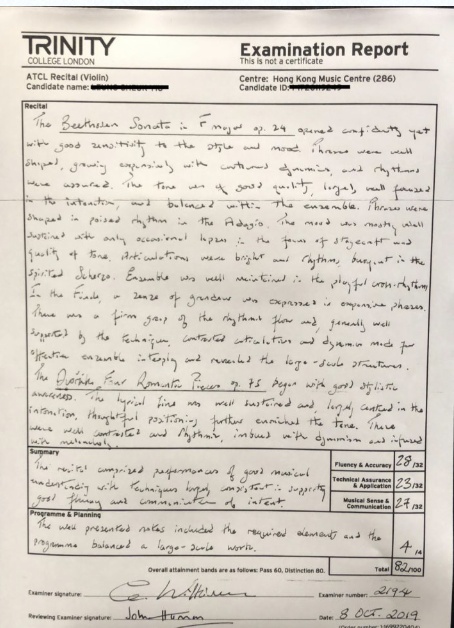 TRINITY
COLLEGE LONDON
Examination Report
This is not a certificate
ATCL Recital (Violin)
Centre: Hong Kong Music Centre (286)
Candidate name:
Candidate ID:
Recital
The Beethoven Sonata in F major op. 24 opened confidently yet
with good sensitivity to the style and mood. Phrases were well
shaped, growing expansively with contrasted dynamics, and rhythms
were assured. The tone was of good quality, largely well focused
in the intonation, and balanced within the ensemble. Phrases were
shaped in poised rhythm in the Adagio. The mood was mostly well
sustained with only occasional lapses in the focus of and
quality of tone. Articulations were bright and rhythmic, buoyant in the
spirited Scherzo. Ensemble was well maintained in the playful cross-rhythm.
In the Finale, a sense of grandeur was expressed in expansive phrases.
There was a firm grasp of the rhythmic flow and, generally well
supported by the technique, contrasted articulation and dynamics made for
effective ensemble interplay and revealed the large-scale structures.
The Dvořák Four Romantic Pieces op. 75 began with good stylistic
awareness. The lyrical line was well sustained and, largely centred in the
intonation, thoughtful positioning further enriched the tone. These
were well contrasted and rhythmic, imbued with dynamism and infused
with melancholy.
Summary
The recital comprised performances of good musical
understanding with techniques largely consistent in supporting
good fluency and communication of intent.
Fluency & Accuracy 28 /32
Technical Assurance & Application 23 /32
Musical Sense & Communication 27 /32
Programme & Planning
The well presented notes included the required elements and the
programme balanced a large-scale work.
4 /4
Overall attainment bands are as follows: Pass 60, Distinction 80.
Total 82 /100
Examiner signature:
Examiner number: 2194
Reviewing Examiner signature: John
Date: 8 OCT. 2019